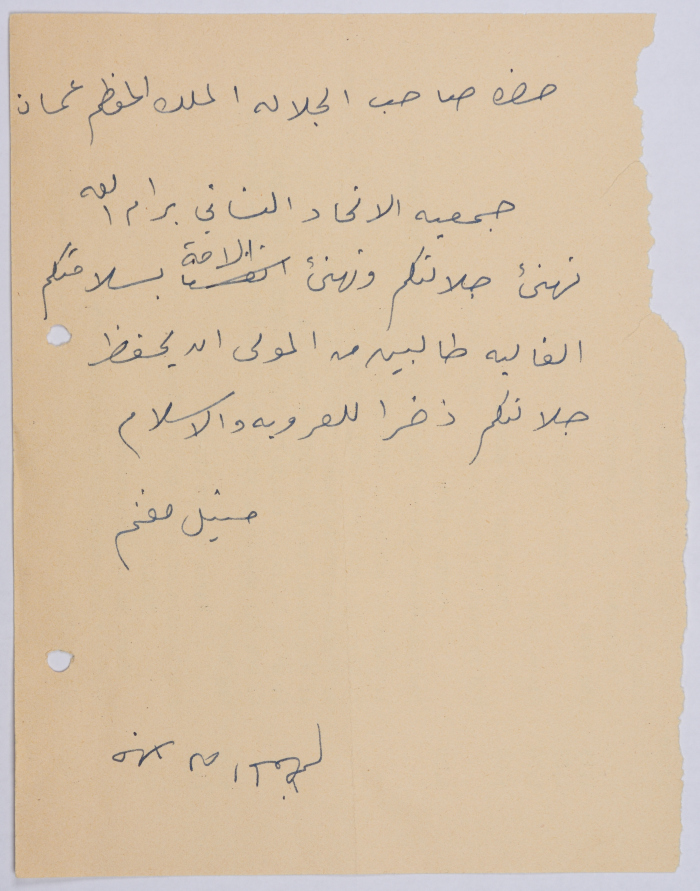 حضرة صاحب الجلاله الملك المعظم عمان
جمعيه الاتحاد النسائي برام الله
تهنئ جلالتكم وتهنئ الامة بسلامتكم
الغاليه طالبين من المولى ان يحفظ
جلالتكم ذخرا للعروبه والاسلام
مغنم